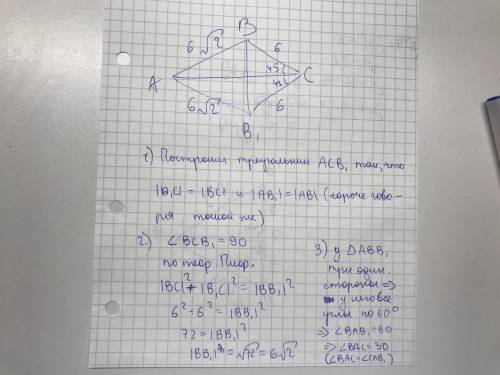 B
6√2
6
45
A
C
45
6√2
6
B₁
1) Построим треугольник ACB₁ так, что
|B₁C| = |BC| и |AB₁| = |AB| (короче гово-
ря такой же)
2) ∠BCB₁ = 90
по теор. Пифаг.
|BC|² + |B₁C|² = |BB₁|²
6² + 6² = |BB₁|²
72 = |BB₁|²
|BB₁| = √72 = 6√2
3) у △ABB₁
три один.
стороны ⇒
у него все
углы по 60°
⇒ ∠BAB₁ = 60
⇒ ∠BAC = 30
(∠BAC = ∠CAB₁)